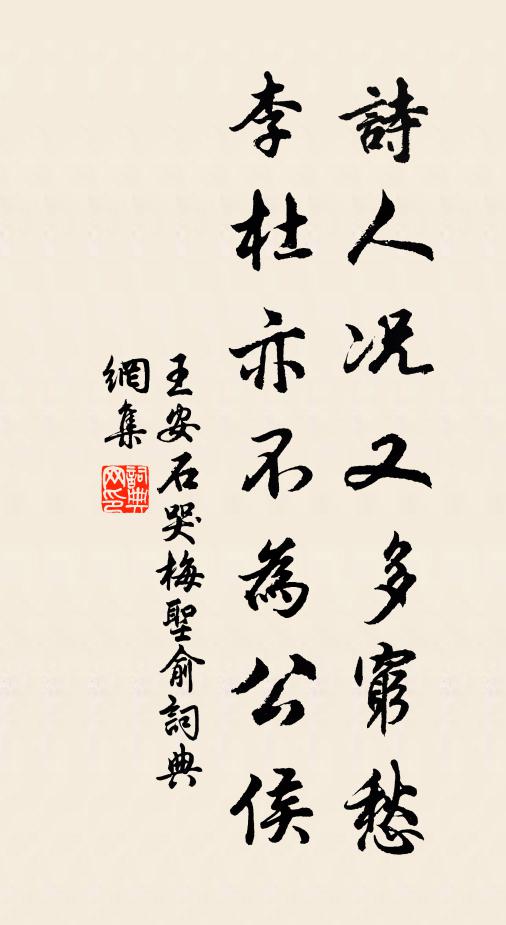 詩人況又多窮愁
李杜亦不為公侯
王安石哭梅聖俞詞典
網集
詞典網印